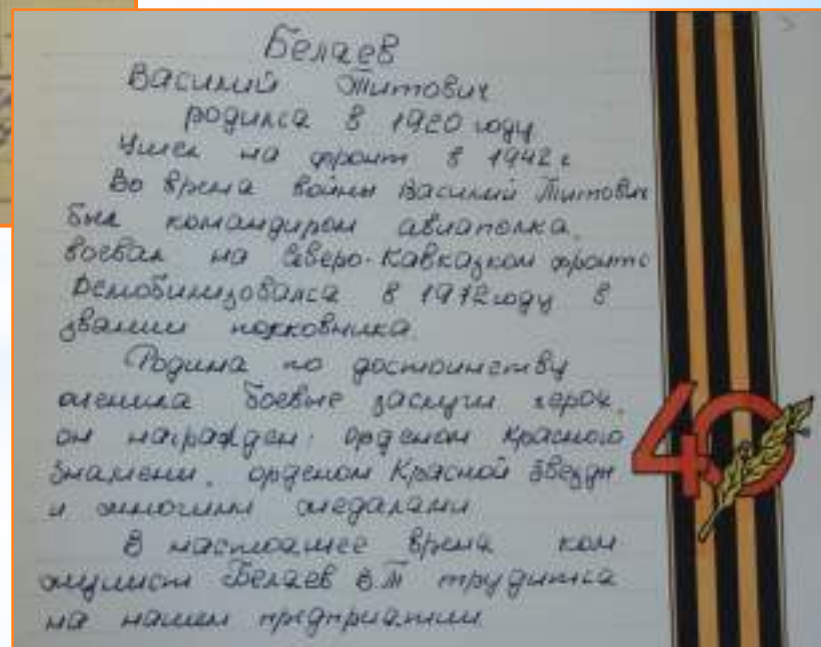 Белаев
Василий Титович
родился в 1920 году
Ушел на фронт в 1942 г
Во время войны Василий Титович
был командиром авиаполка,
воевал на Северо-Кавказком фронте
Демобилизовался в 1972 году в
звании полковника.
Родина по достоинству
оценила боевые заслуги героя.
он награжден: орденом Красного
Знамени, орденом Красной Звезды
и многими медалями
В настоящее время ком
мунист Белаев В.Т трудится
на нашем предприятии
40